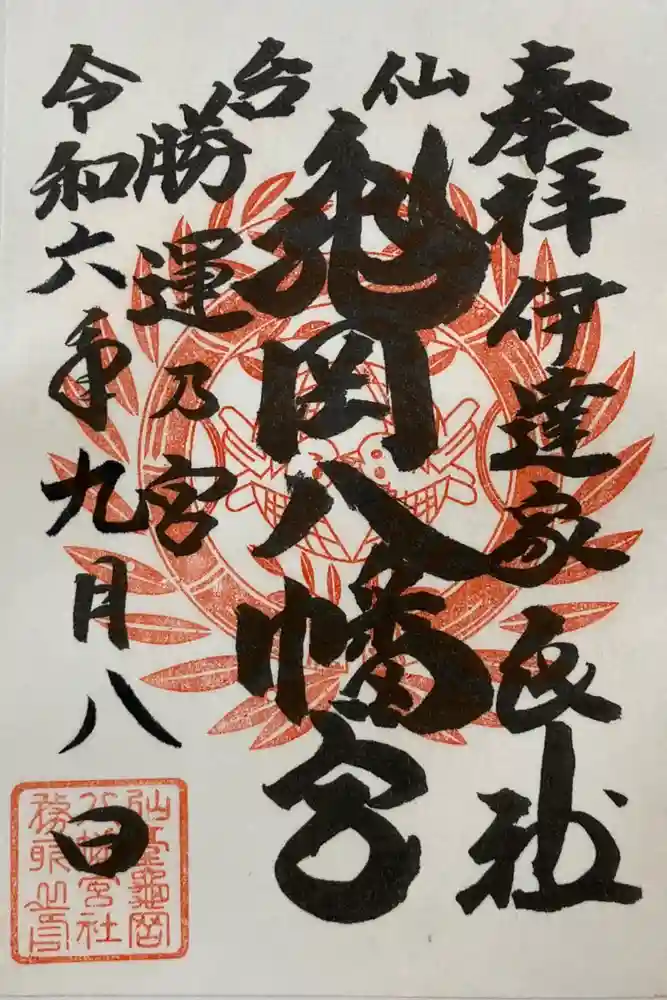 奉拝 伊達家氏社
仙台
亀岡八幡宮
勝運乃宮
令和六年九月八日
仙臺龜岡
八幡宮社
務所之印